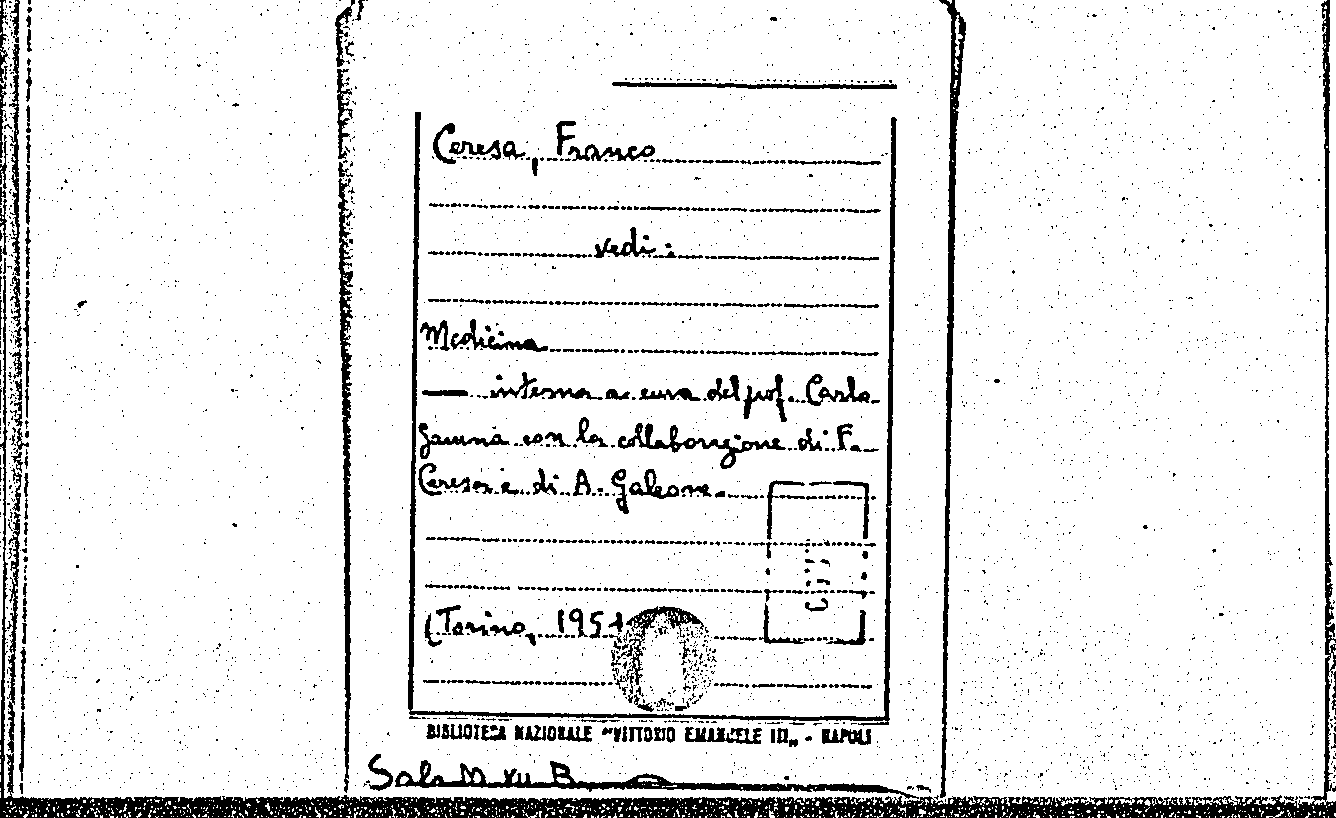 Ceresa, Franco
vedi:
Medicina
— interna a cura del prof. Carlo
Gamna con la collaborazione di F.
Ceresa e di A. Galeone.
(Torino, 1951
BIBLIOTECA NAZIONALE "VITTORIO EMANUELE III„ - NAPOLI
Sala M. XII B